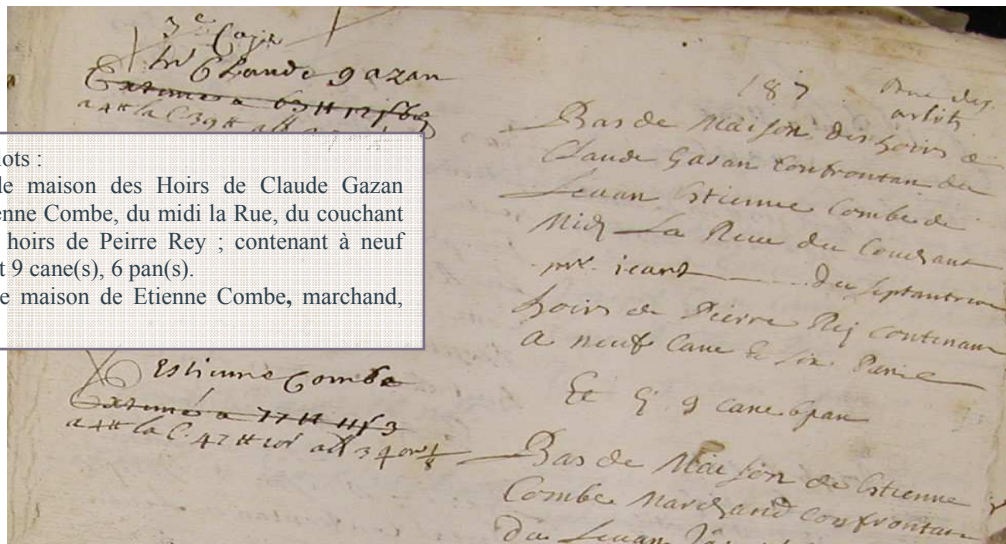 3e Cazin
hrs Claude gazan
Extimés à 63tt
a 4tt la C 39tt
lots :
de maison des Hoirs de Claude Gazan
ienne Combe, du midi la Rue, du couchant
hoirs de Peirre Rey ; contenant à neuf
t 9 cane(s), 6 pan(s).
e maison de Etienne Combe, marchand,
Estienne Combe
Extimé a 77tt 11s 3
a 4tt la C. 47tt 10s
187 Rue des
Bas de Maison des hoirs de
Claude Gasan Confrontan du
Levan Estienne Combe de
Midy La Rue du Couchant
icart du Septantrion
hoirs de Pierre Rey contenan
a neuf Cane & six Pan
Et Cy 9 cane 6 pan
Bas de Maison de Estienne
Combe Marchand Confrontan
Du Levan